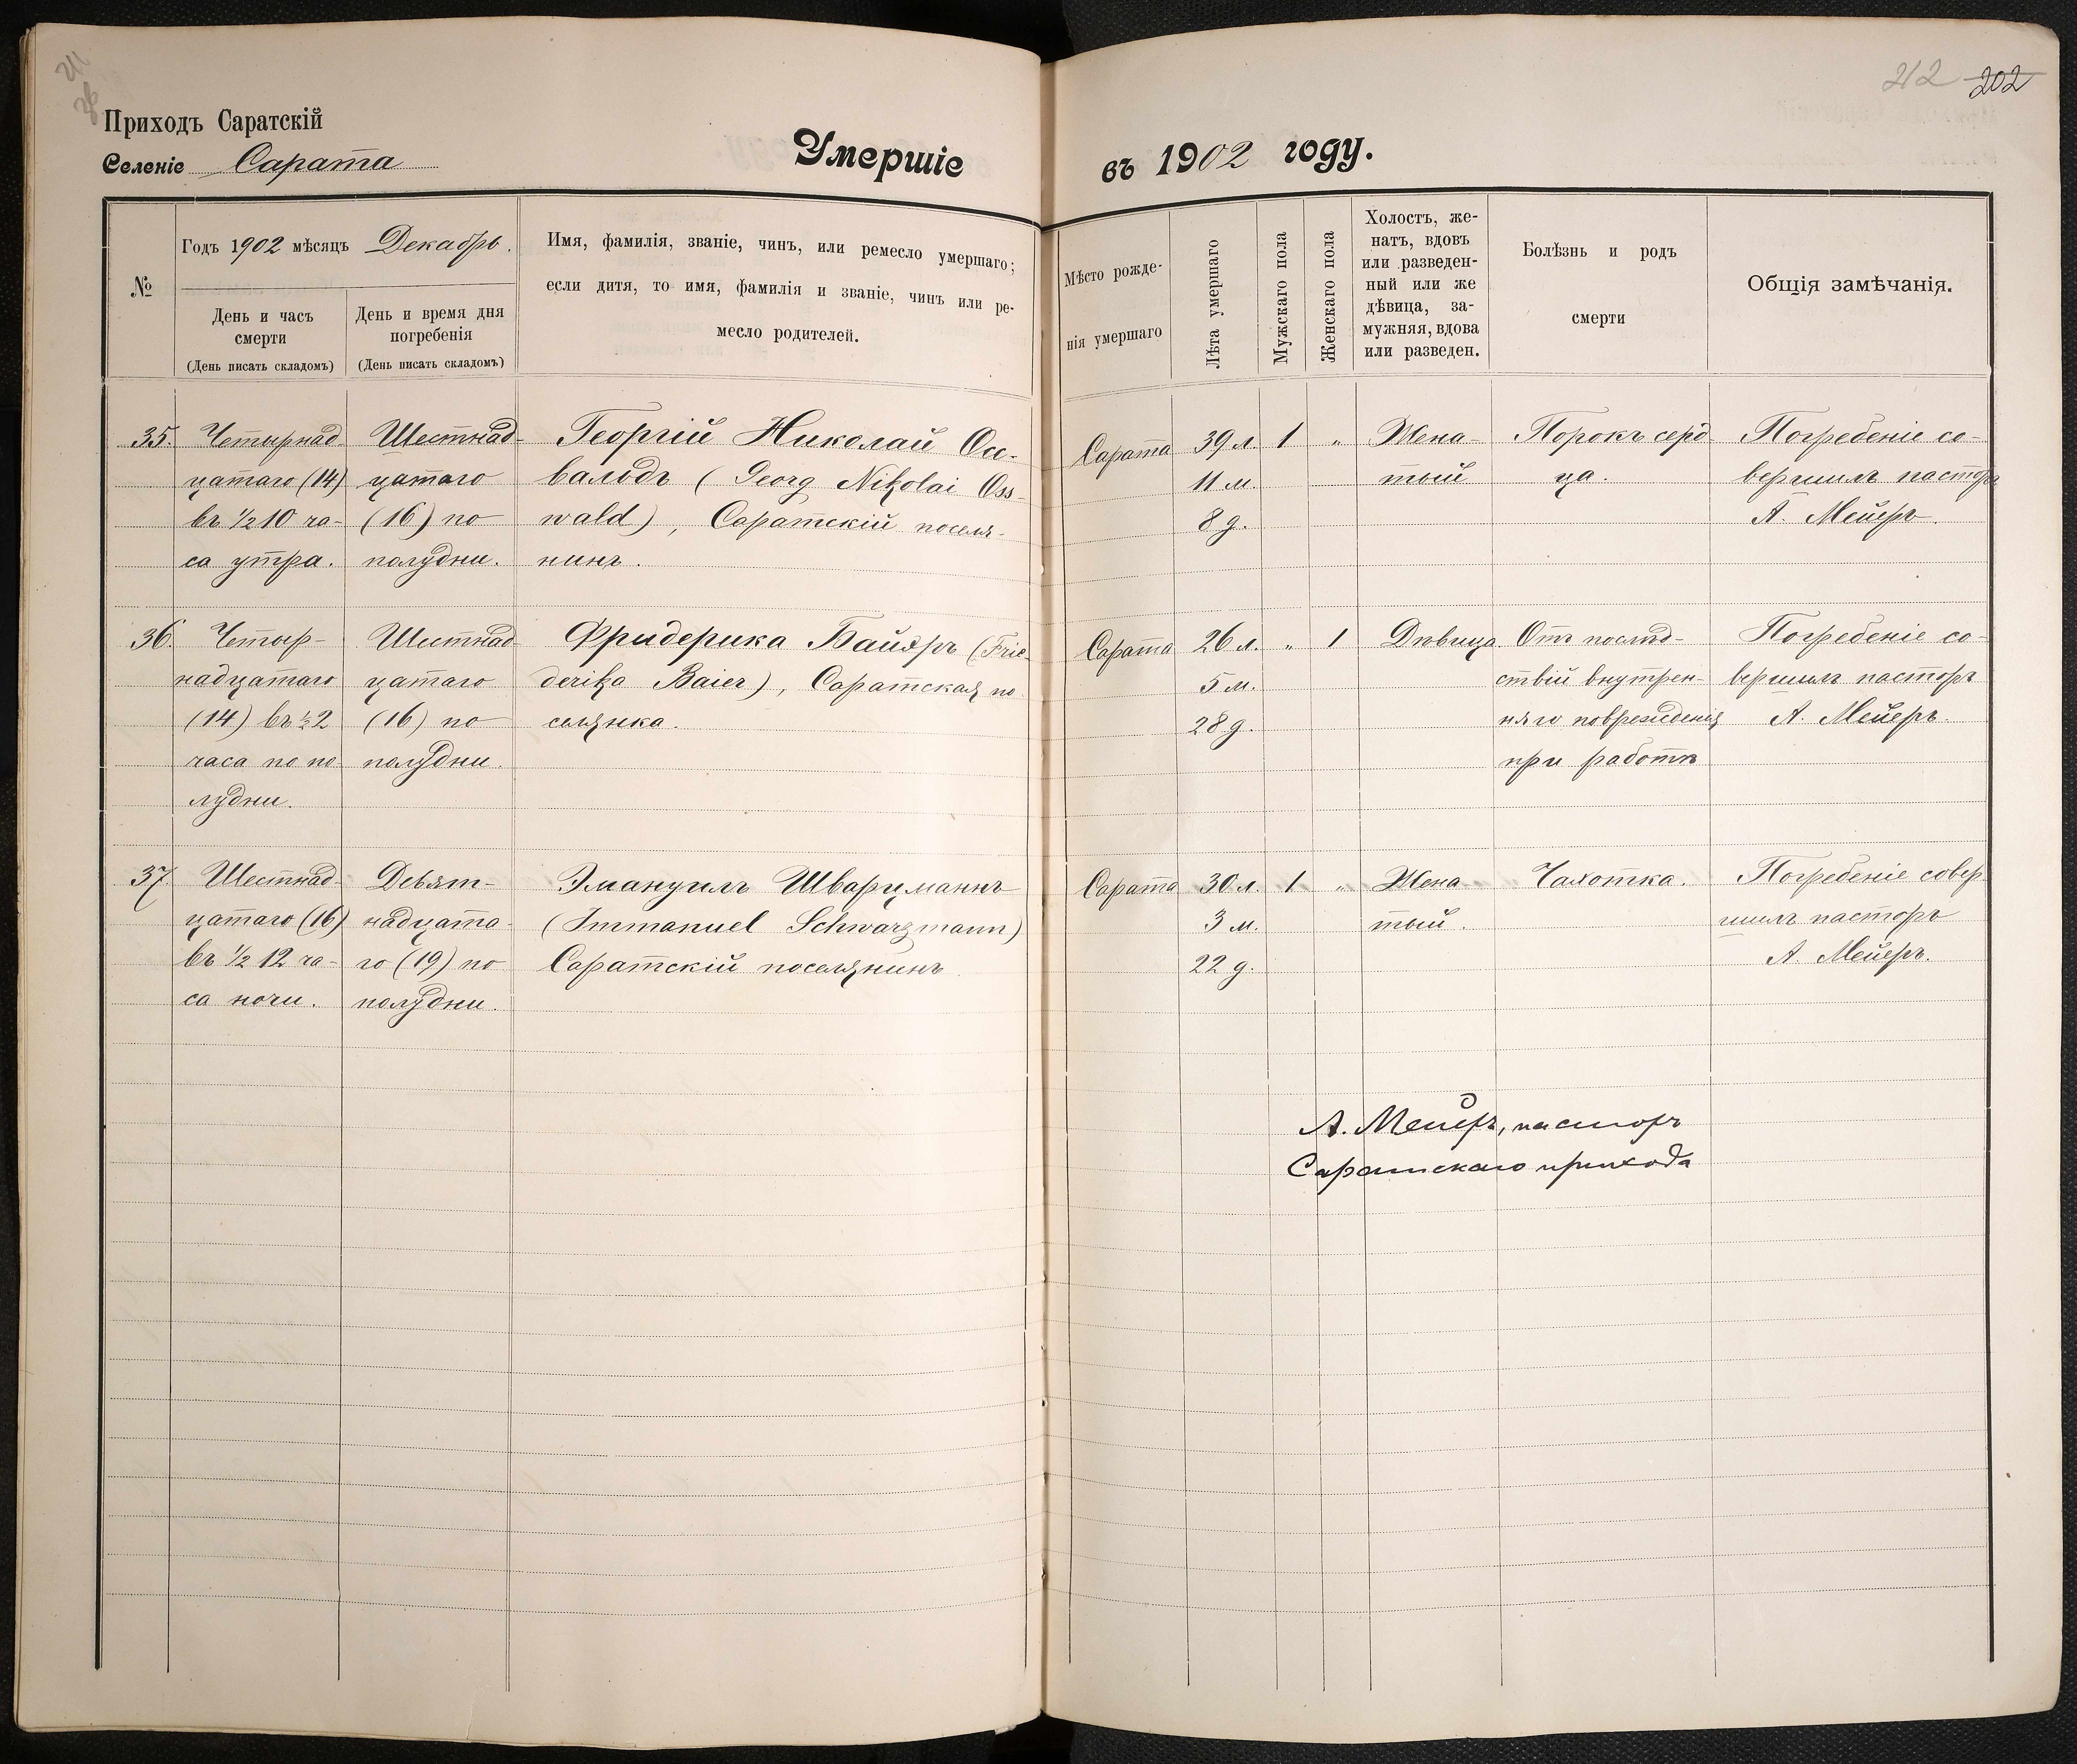 212 202
Приходъ Саратскій
Селеніе Сарата
Умершіе
въ 1902 году.
№
Годъ 1902 мѣсяцъ Декабрь.
День и часъ
смерти
(День писать складомъ)
День и время дня
погребенія
(День писать складомъ)
Имя, фамилія, званіе, чинъ, или ремесло умершаго;
если дитя, то имя, фамилія и званіе, чинъ или ре-
месло родителей.
Мѣсто рожде-
нія умершаго
Лѣта умершаго
Мужскаго пола
Женскаго пола
Холостъ, же-
натъ, вдовъ
или разведен-
ный или же
дѣвица, за-
мужняя, вдова
или разведен.
Болѣзнь и родъ
смерти
Общія замѣчанія.
35.
Четырнад-
цатаго (14)
въ ½ 10 ча-
са утра.
Шестнад-
цатаго
(16) по
полудни.
Георгій Николай Ос-
вальдъ (Georg Nikolai Oss-
wald), Саратскій поселя-
нинъ.
Сарата
39 л.
11 м.
8 д.
1
"
Жена-
тый
Порокъ серд-
ца.
Погребеніе со-
вершилъ пасторъ
А. Мейеръ.
36.
Четыр-
надцатаго
(14) въ ½ 2
часа по по-
лудни.
Шестнад-
цатаго
(16) по
полудни.
Фридерика Байеръ (Frie-
derika Baier), Саратская по-
селянка.
Сарата
26 л.
5 м.
28 д.
"
1
Дѣвица.
Отъ послѣд-
ствій внутрен-
няго поврежденія
при работѣ
Погребеніе со-
вершилъ пасторъ
А. Мейеръ.
37.
Шестнад-
цатаго (16)
въ ½ 12 ча-
са ночи.
Девят-
надцата-
го (19) по
полудни.
Эмануилъ Шварцманнъ
(Immanuel Schwarzmann)
Саратскій поселянинъ
Сарата
30 л.
3 м.
22 д.
1
"
Жена-
тый.
Чахотка.
Погребеніе совер-
шилъ пасторъ
А. Мейеръ.
А. Мейеръ, пасторъ
Саратскаго прихода